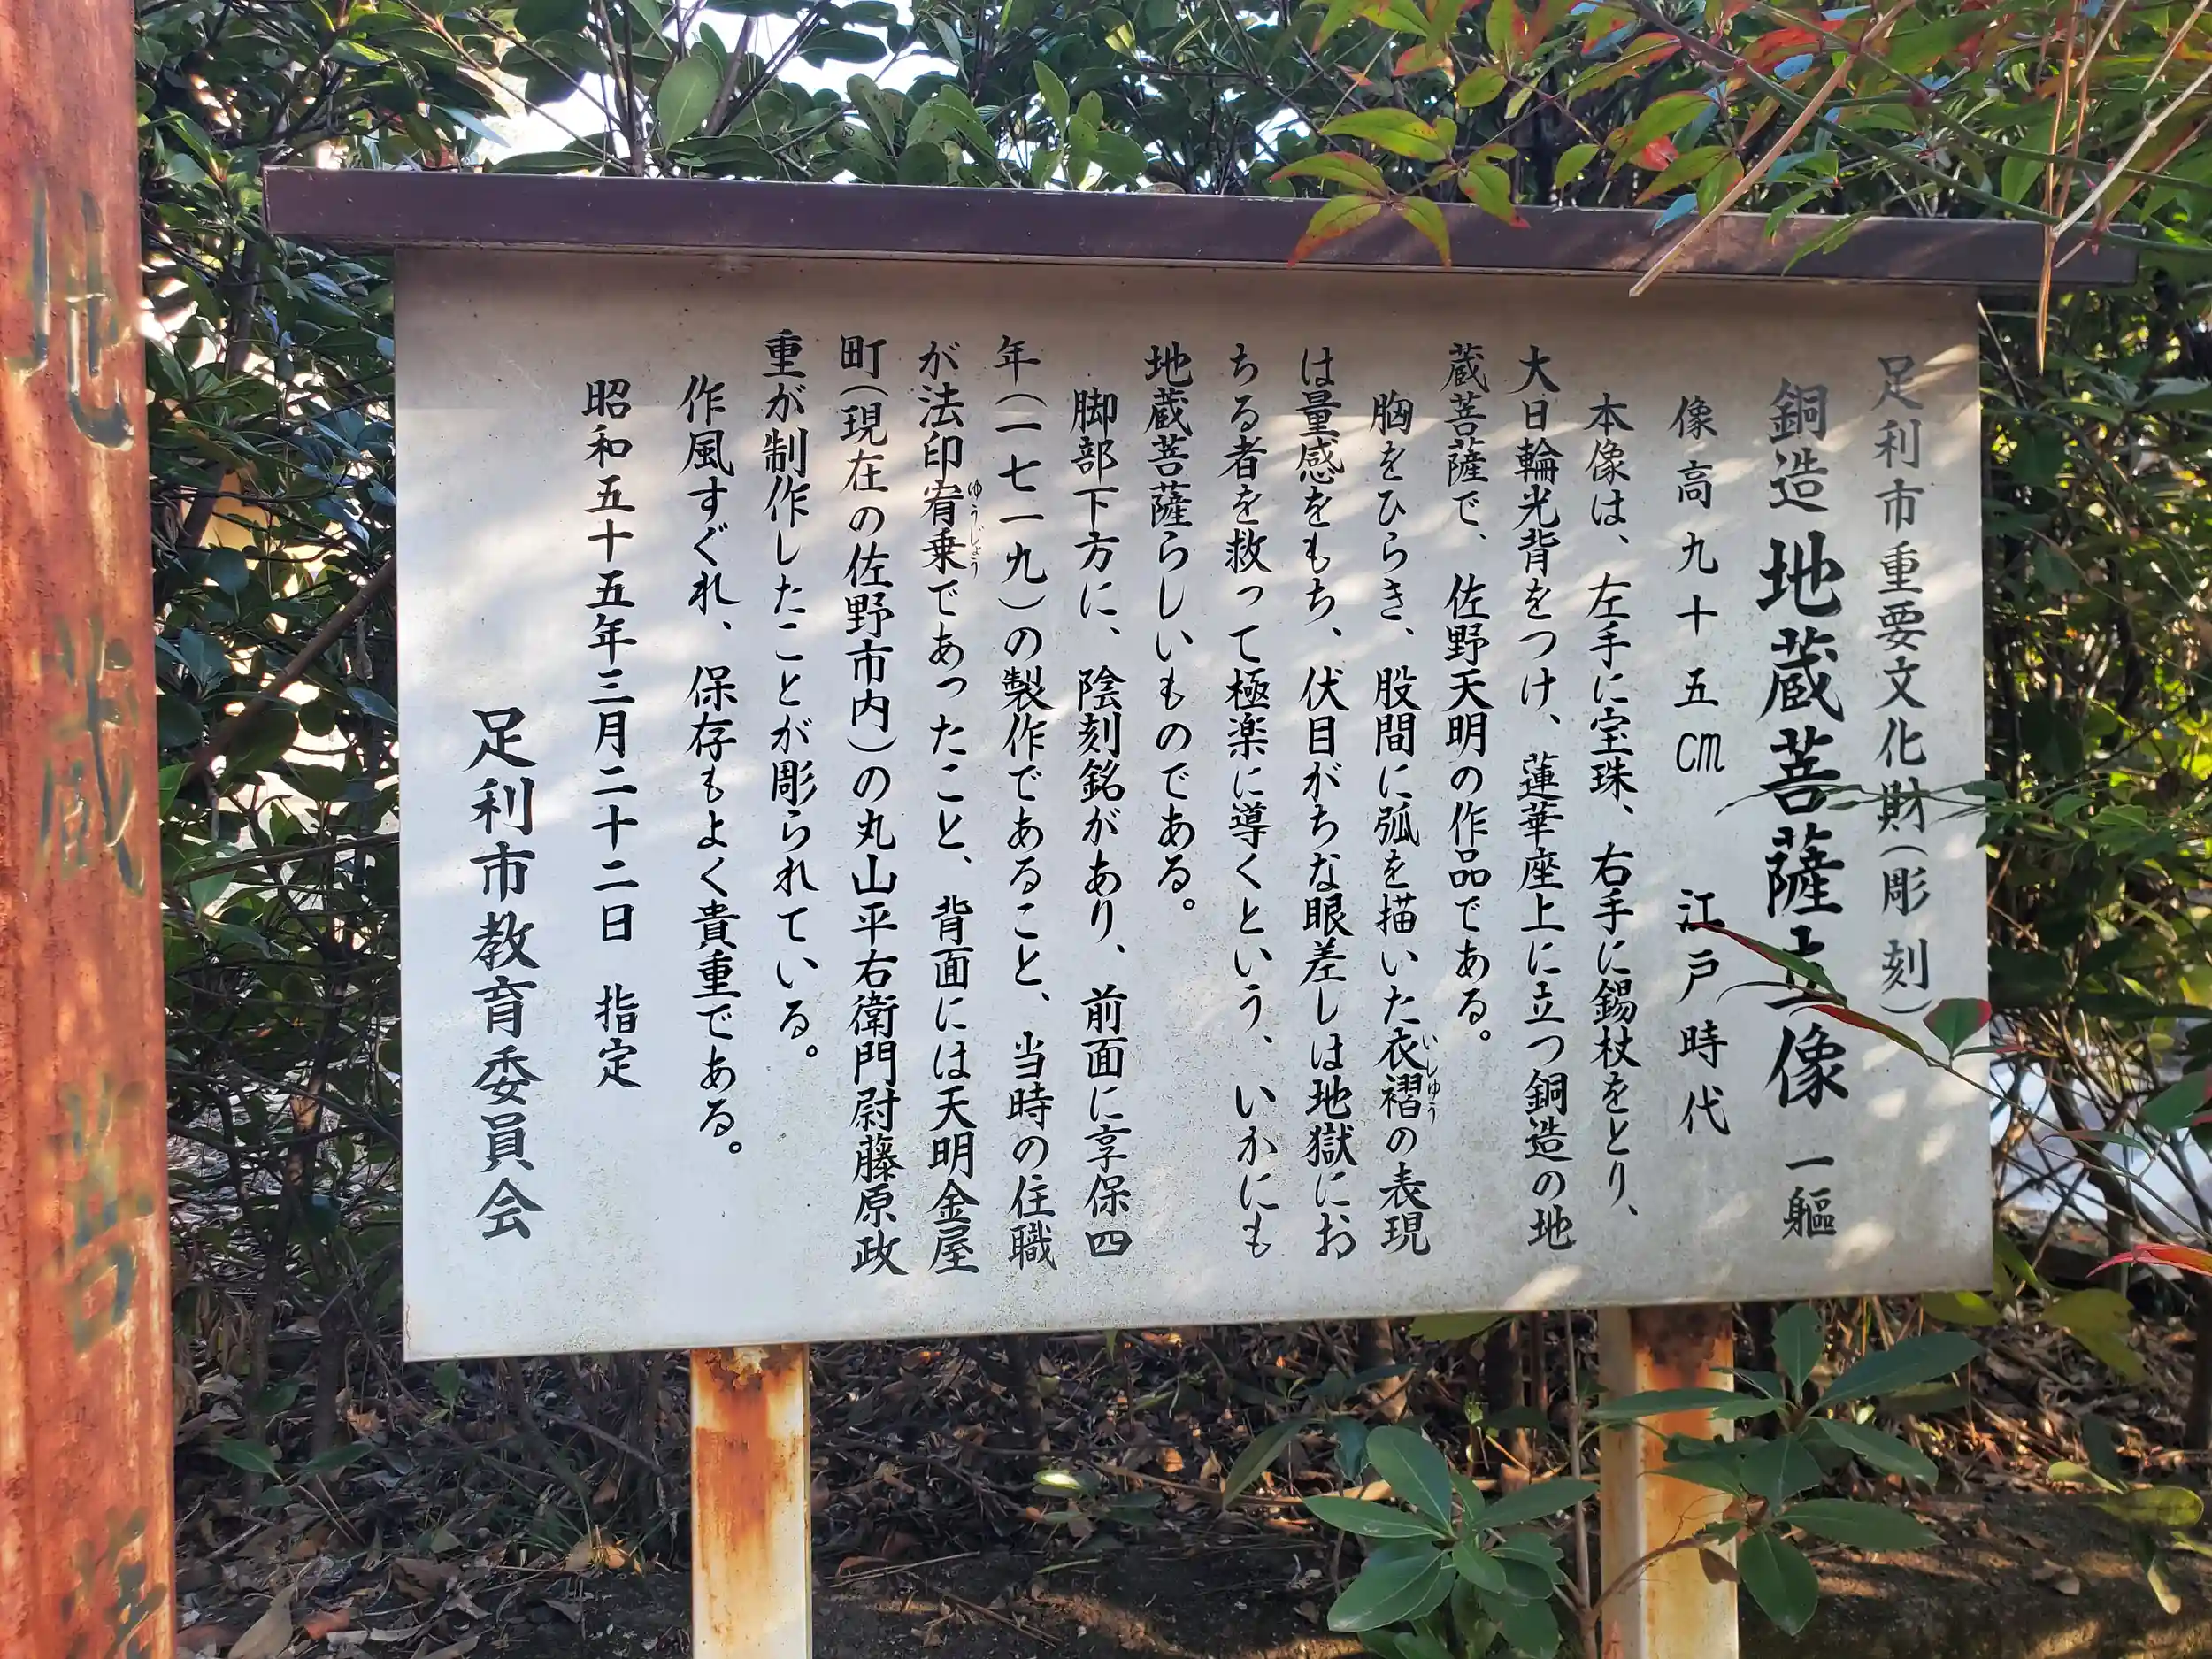 足利市重要文化財(彫刻)
銅造 地蔵菩薩立像 一軀
像高九十五㎝ 江戸時代
本像は、左手に宝珠、右手に錫杖をとり、
大日輪光背をつけ、蓮華座上に立つ銅造の地
蔵菩薩で、佐野天明の作品である。
胸をひらき、股間に弧を描いた衣褶の表現
いしゅう
は量感をもち、伏目がちな眼差しは地獄にお
ちる者を救って極楽に導くという、いかにも
地蔵菩薩らしいものである。
脚部下方に、陰刻銘があり、前面に享保四
年(一七一九)の製作であること、当時の住職
が法印宥乗であったこと、背面には天明金屋
ゆうじょう
町(現在の佐野市内)の丸山平右衛門尉藤原政
重が制作したことが彫られている。
作風すぐれ、保存もよく貴重である。
昭和五十五年三月二十二日 指定
足利市教育委員会
地蔵菩薩